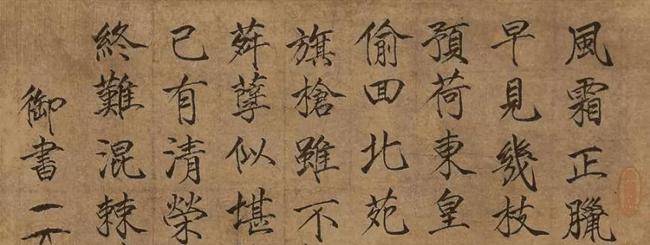 風霜正臘
早見幾枝
預荷東皇
偷回北苑
旗槍雖不
蕣孽似堪
已有清榮
終難混棘
御書一